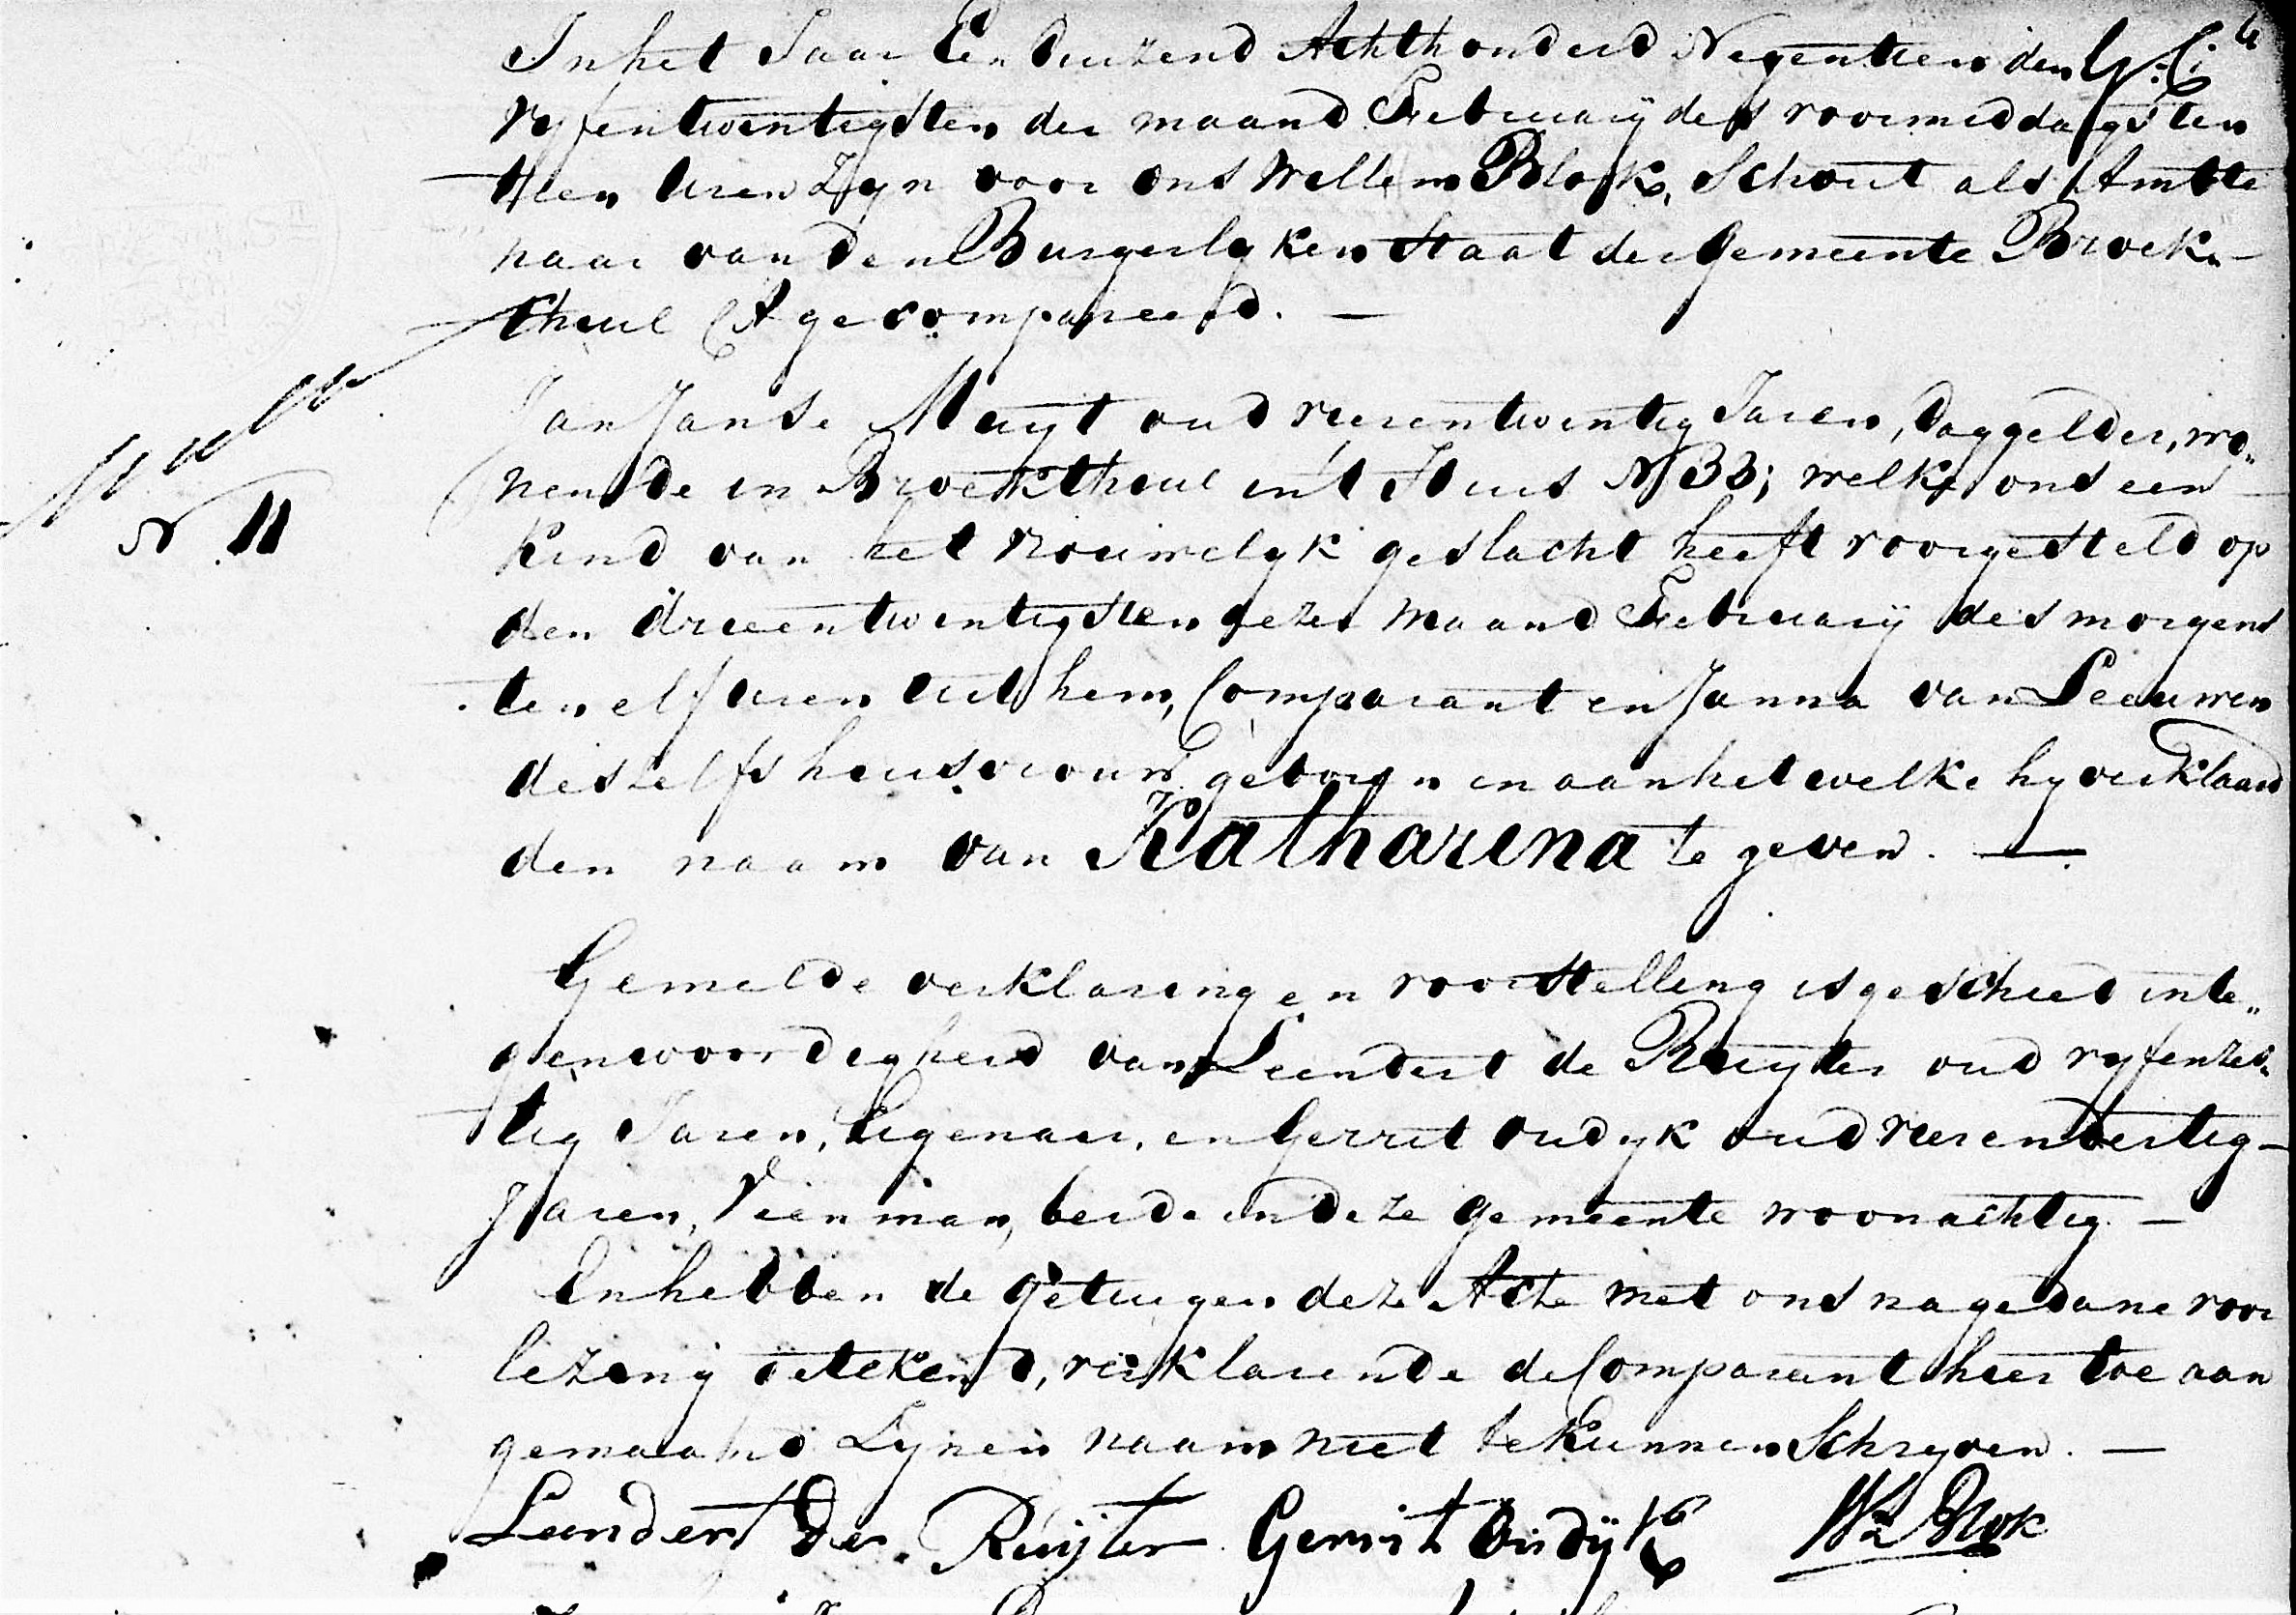 In het Jaar Een duizend Achthonderd Negentien den
vyfentwintigsten der maand February des voormiddags ten
tien uren Zyn voor ons Willem Blok, Schout als Ambte
naar van den Burgerlyken Staat der Gemeente Broek„
thuil &A gecompareerd. —
Jan Janse Muyt oud vierentwintig Jaren, daggelder, wo„
nende in Broekthuil in't Huis N 33; welke ons een
N 11
Kind van het vrouwelyk geslacht heeft voorgesteld op
den drieentwintigsten dezer maand February des morgens
ten elf uren uit hem, Comparant en Janna van Leeuwen
deszelfs huisvrouw geboren en aan het welke hy verklaard
den naam van Katharina te geven. —
Gemelde verklaring en voorstelling is geschied in te„
genwoordigheid van Leendert de Ruyter oud vyfenzes„
tig Jaren, Eigenaar, en Gerrit Oudyk oud vierendertig —
Jaren, Veenman, beide in deze gemeente woonachtig. —
En hebben de getuigen deze Acte met ons na gedane voor
lezing getekend, verklarende de Comparant hier toe aan
gemaand Zynen naam niet te Kunnen Schryven. —
Leendert De Ruijter Gerrit Oudijk Wm Blok